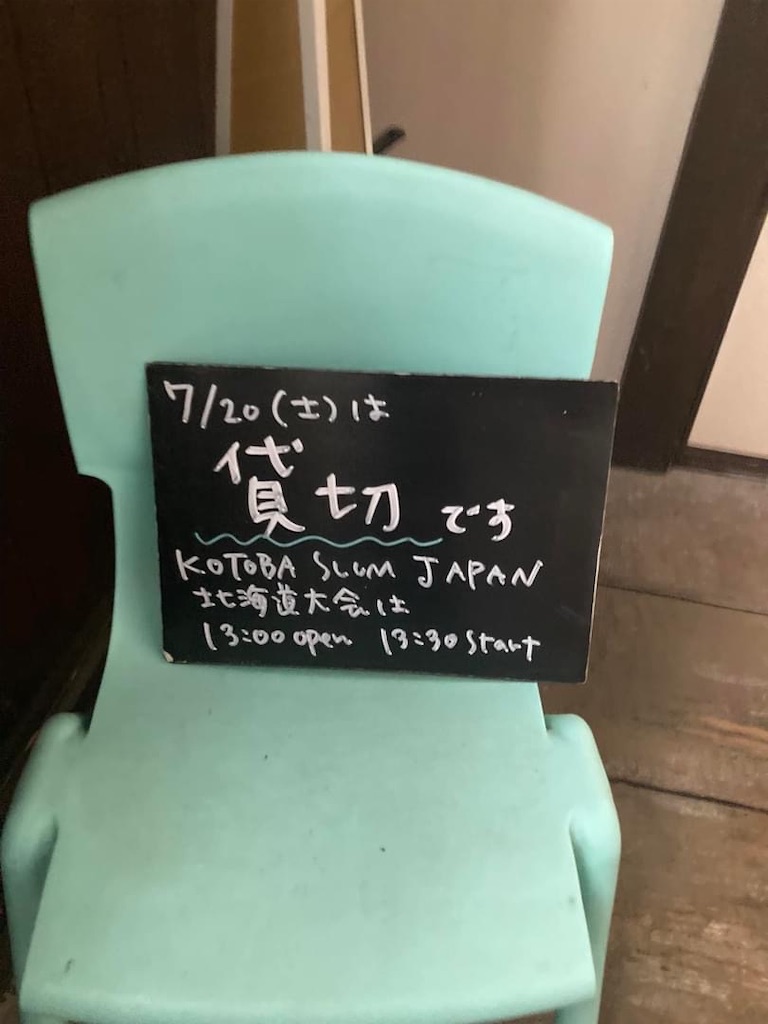 7/20(土)は
貸切です
KOTOBA SLUM JAPAN
北海道大会は
13:00 open 13:30 start